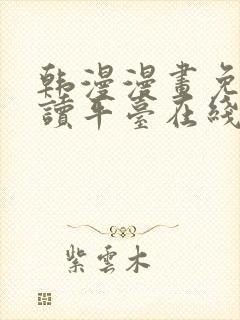 韩漫漫畫免
讀平臺在綫
紫雲木